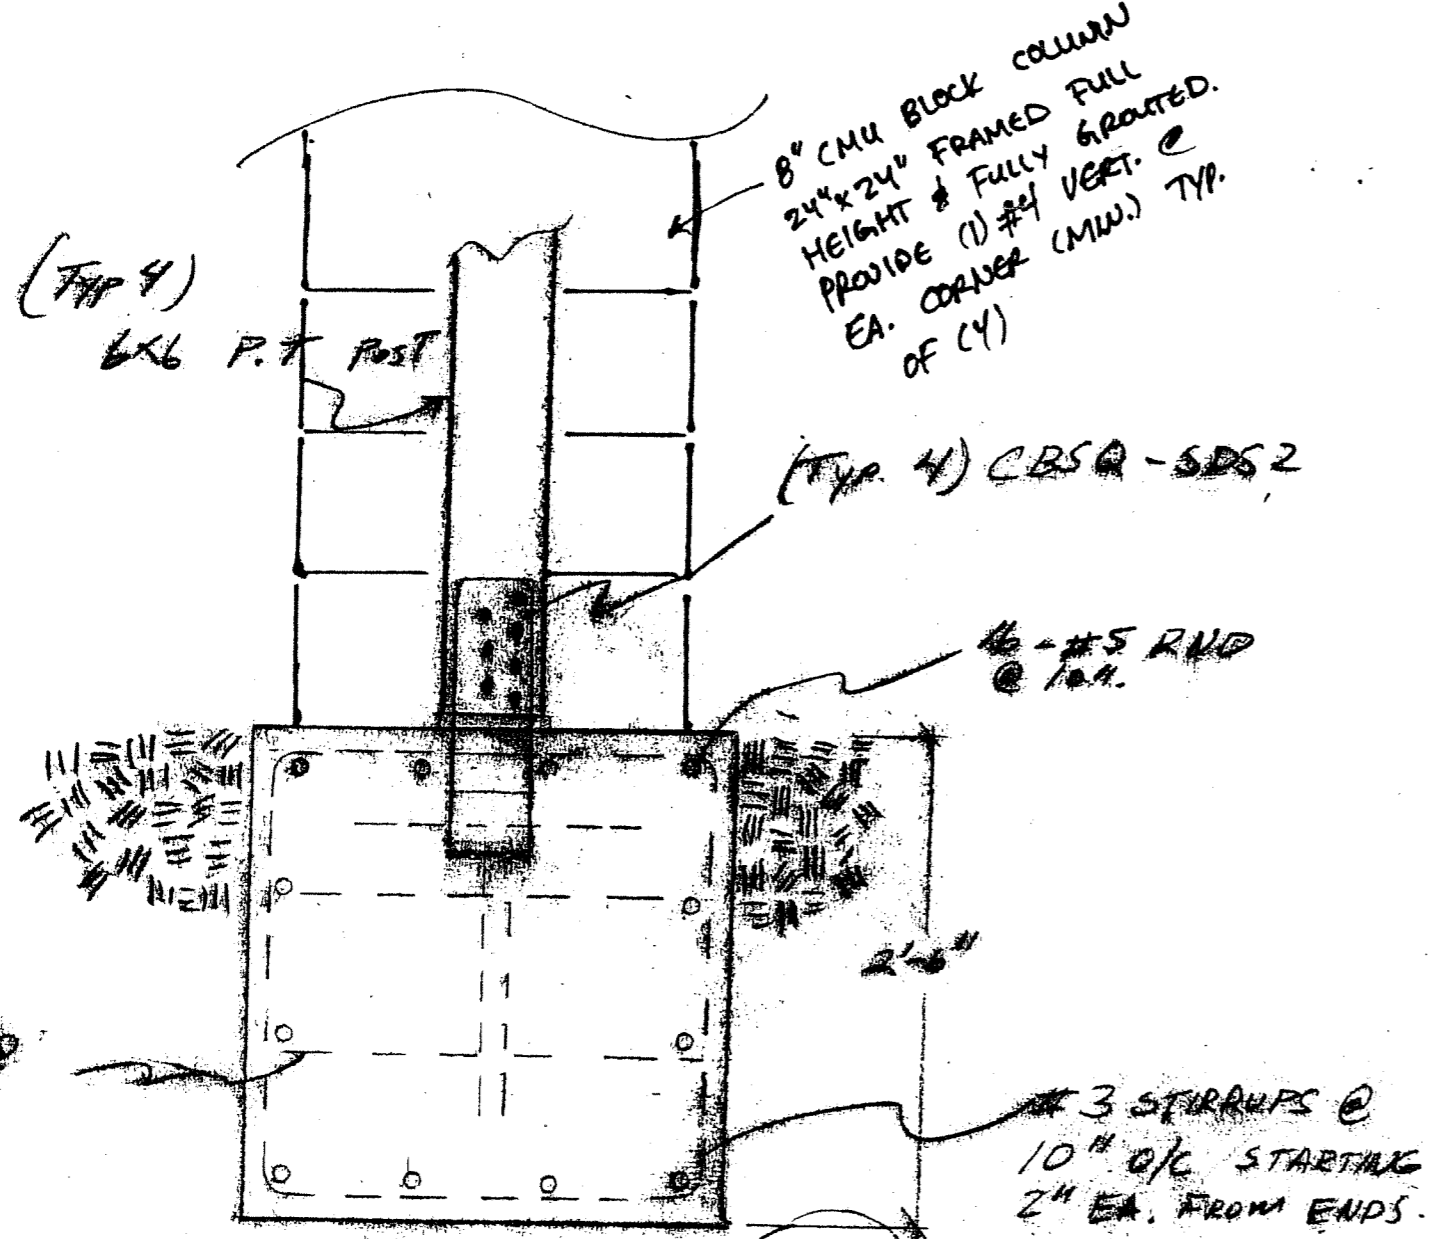 8" CMU BLOCK COLUMN
24" x 24" FRAMED FULL
HEIGHT & FULLY GROUTED.
PROVIDE (1) #4 VERT. @
EA. CORNER (MIN.) TYP.
OF (4)
(TYP 4)
6x6 P.T POST
(TYP. 4) CBSQ - SDS2
#5 RND
@
2'-6"
#3 STIRRUPS @
10" O/C STARTING
2" EA. FROM ENDS.